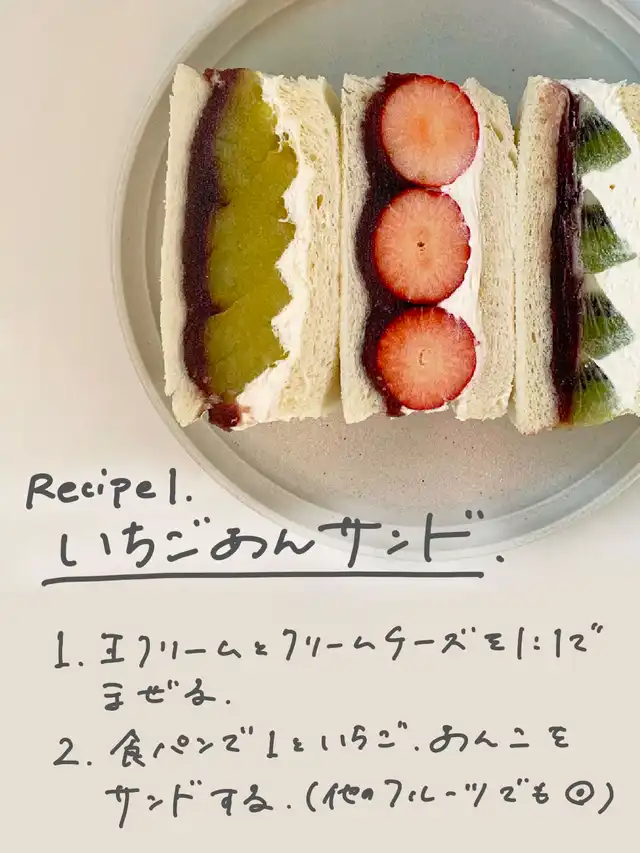 Recipe 1.
いちごあんサンド.
1. 生クリームとクリームチーズを1:1で
まぜる.
2. 食パンで1といちご.あんこを
サンドする.(他のフルーツでも◎)